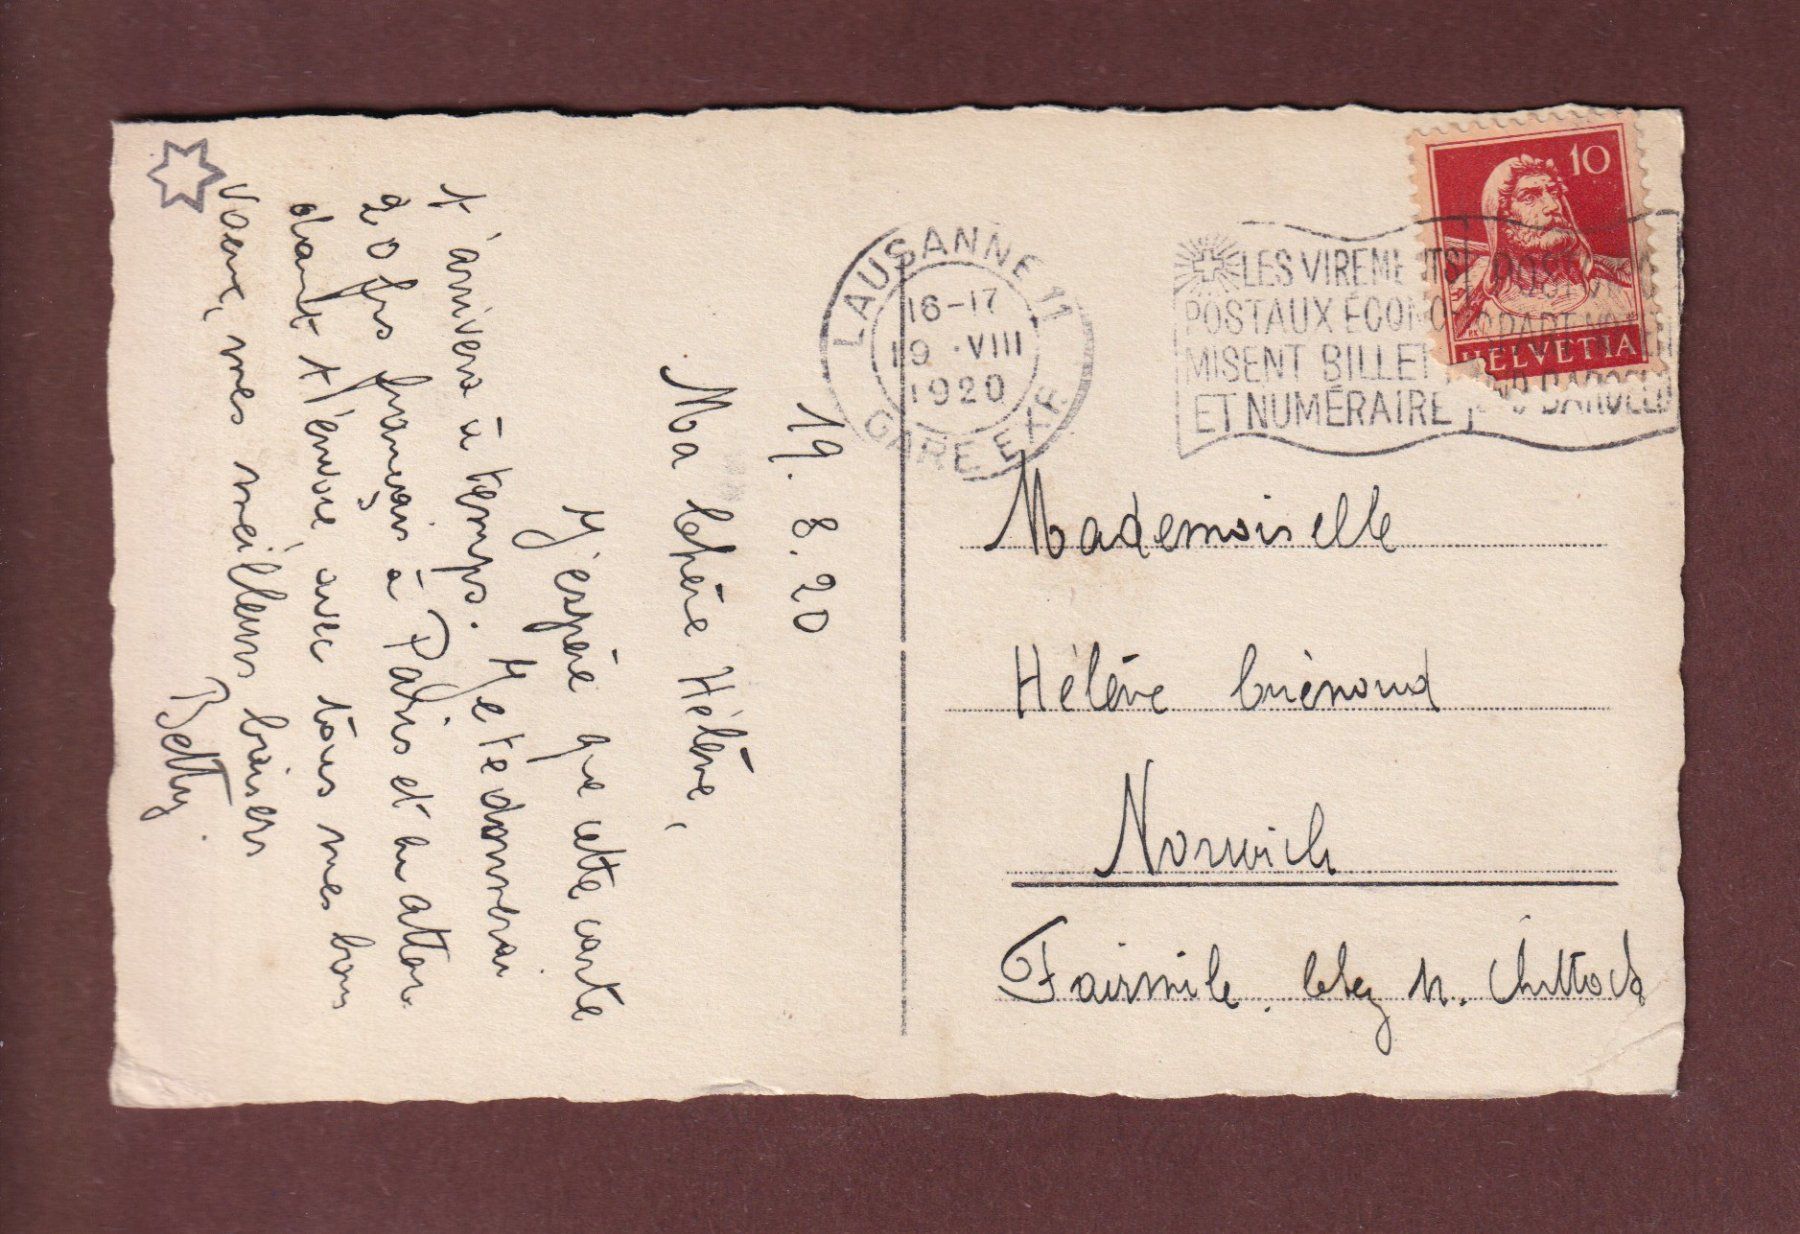 19.8.20
Ma Chère Hélène,
J'espère que cette carte
t'arrivera à temps. Je te donnerai
20 frs français à Paris et en atten-
dant t'envoie avec tous mes bons
voeux, mes meilleurs baisers
Betty.
LAUSANNE 11
16-17
19.VIII
1920
GARE EXP.
LES VIREMENTS
POSTAUX ÉCONO-
MISENT BILLET
ET NUMÉRAIRE
10
HELVETIA
Mademoiselle
Hélène
Norwich
Fairmile. Chez M. Chittock